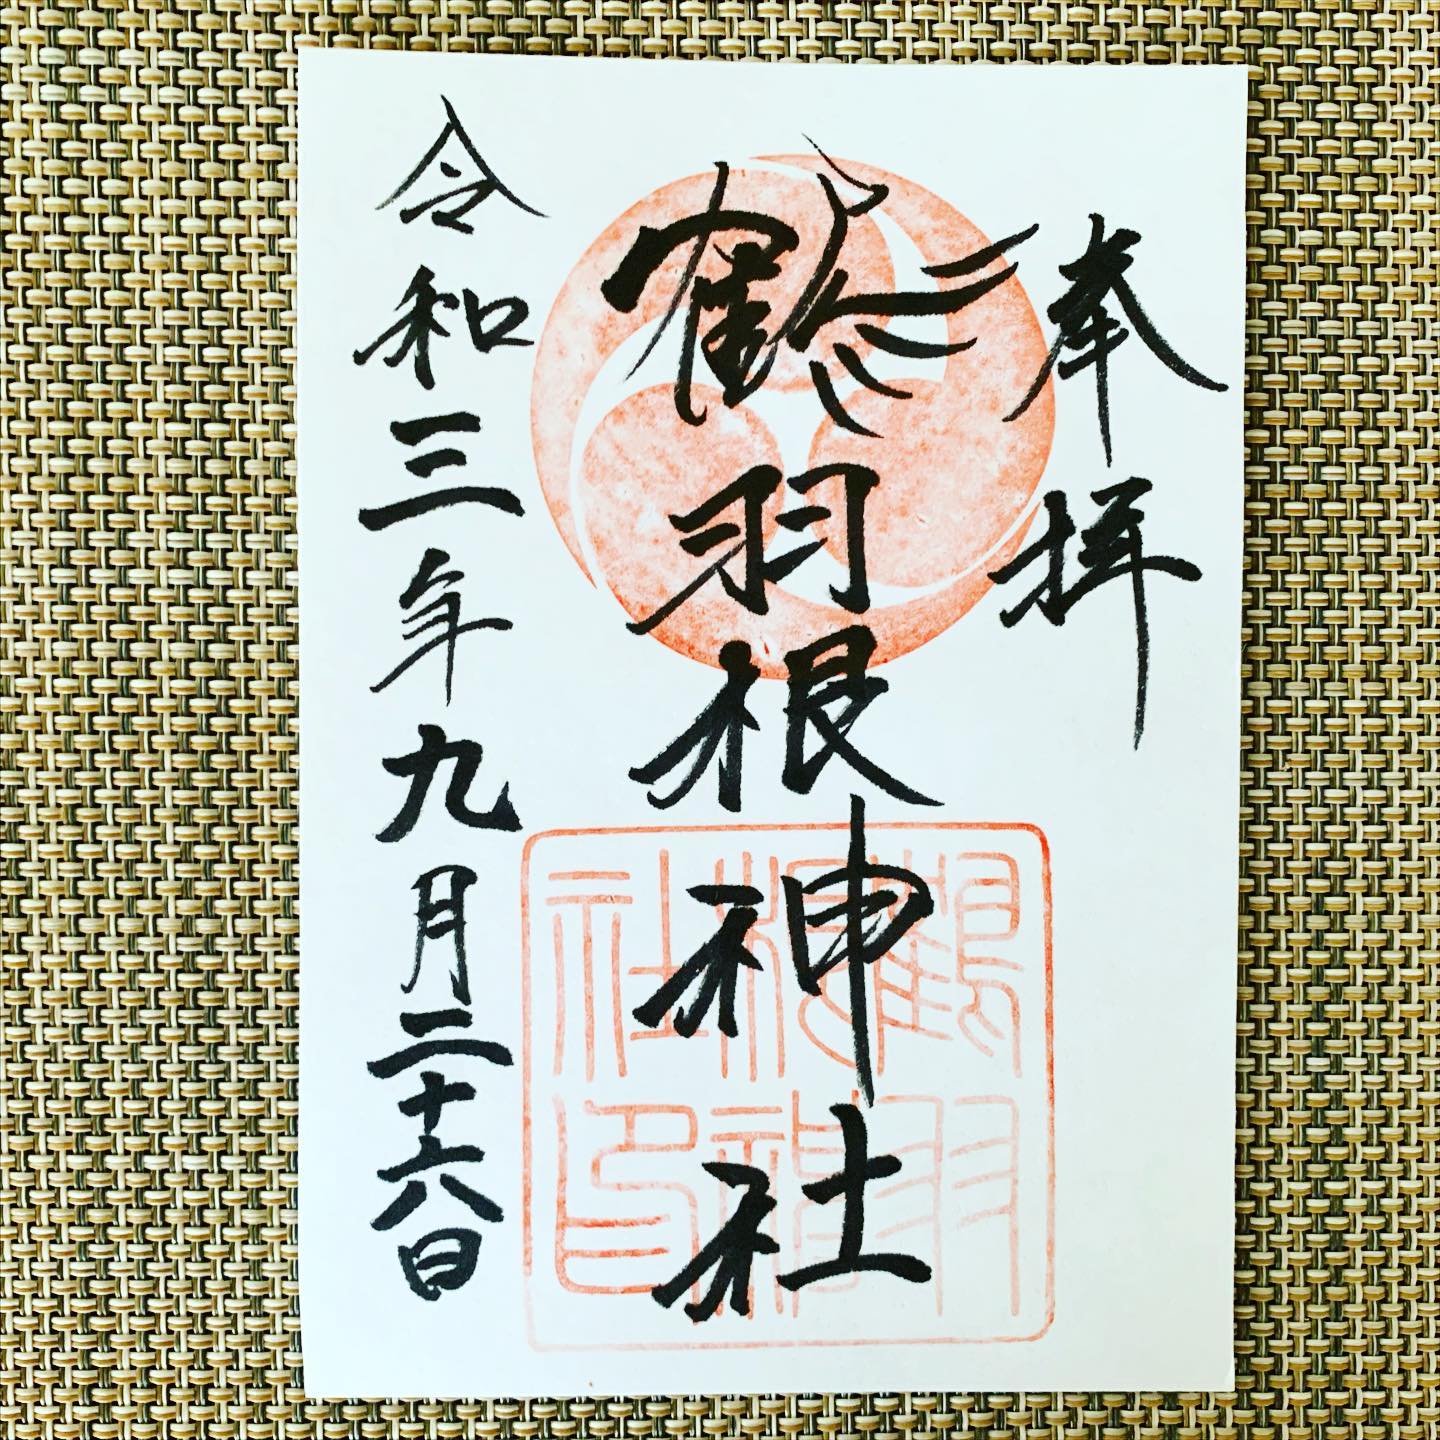 奉拝
鶴羽根神社
令和三年九月二十六日
鶴羽
根神
社印